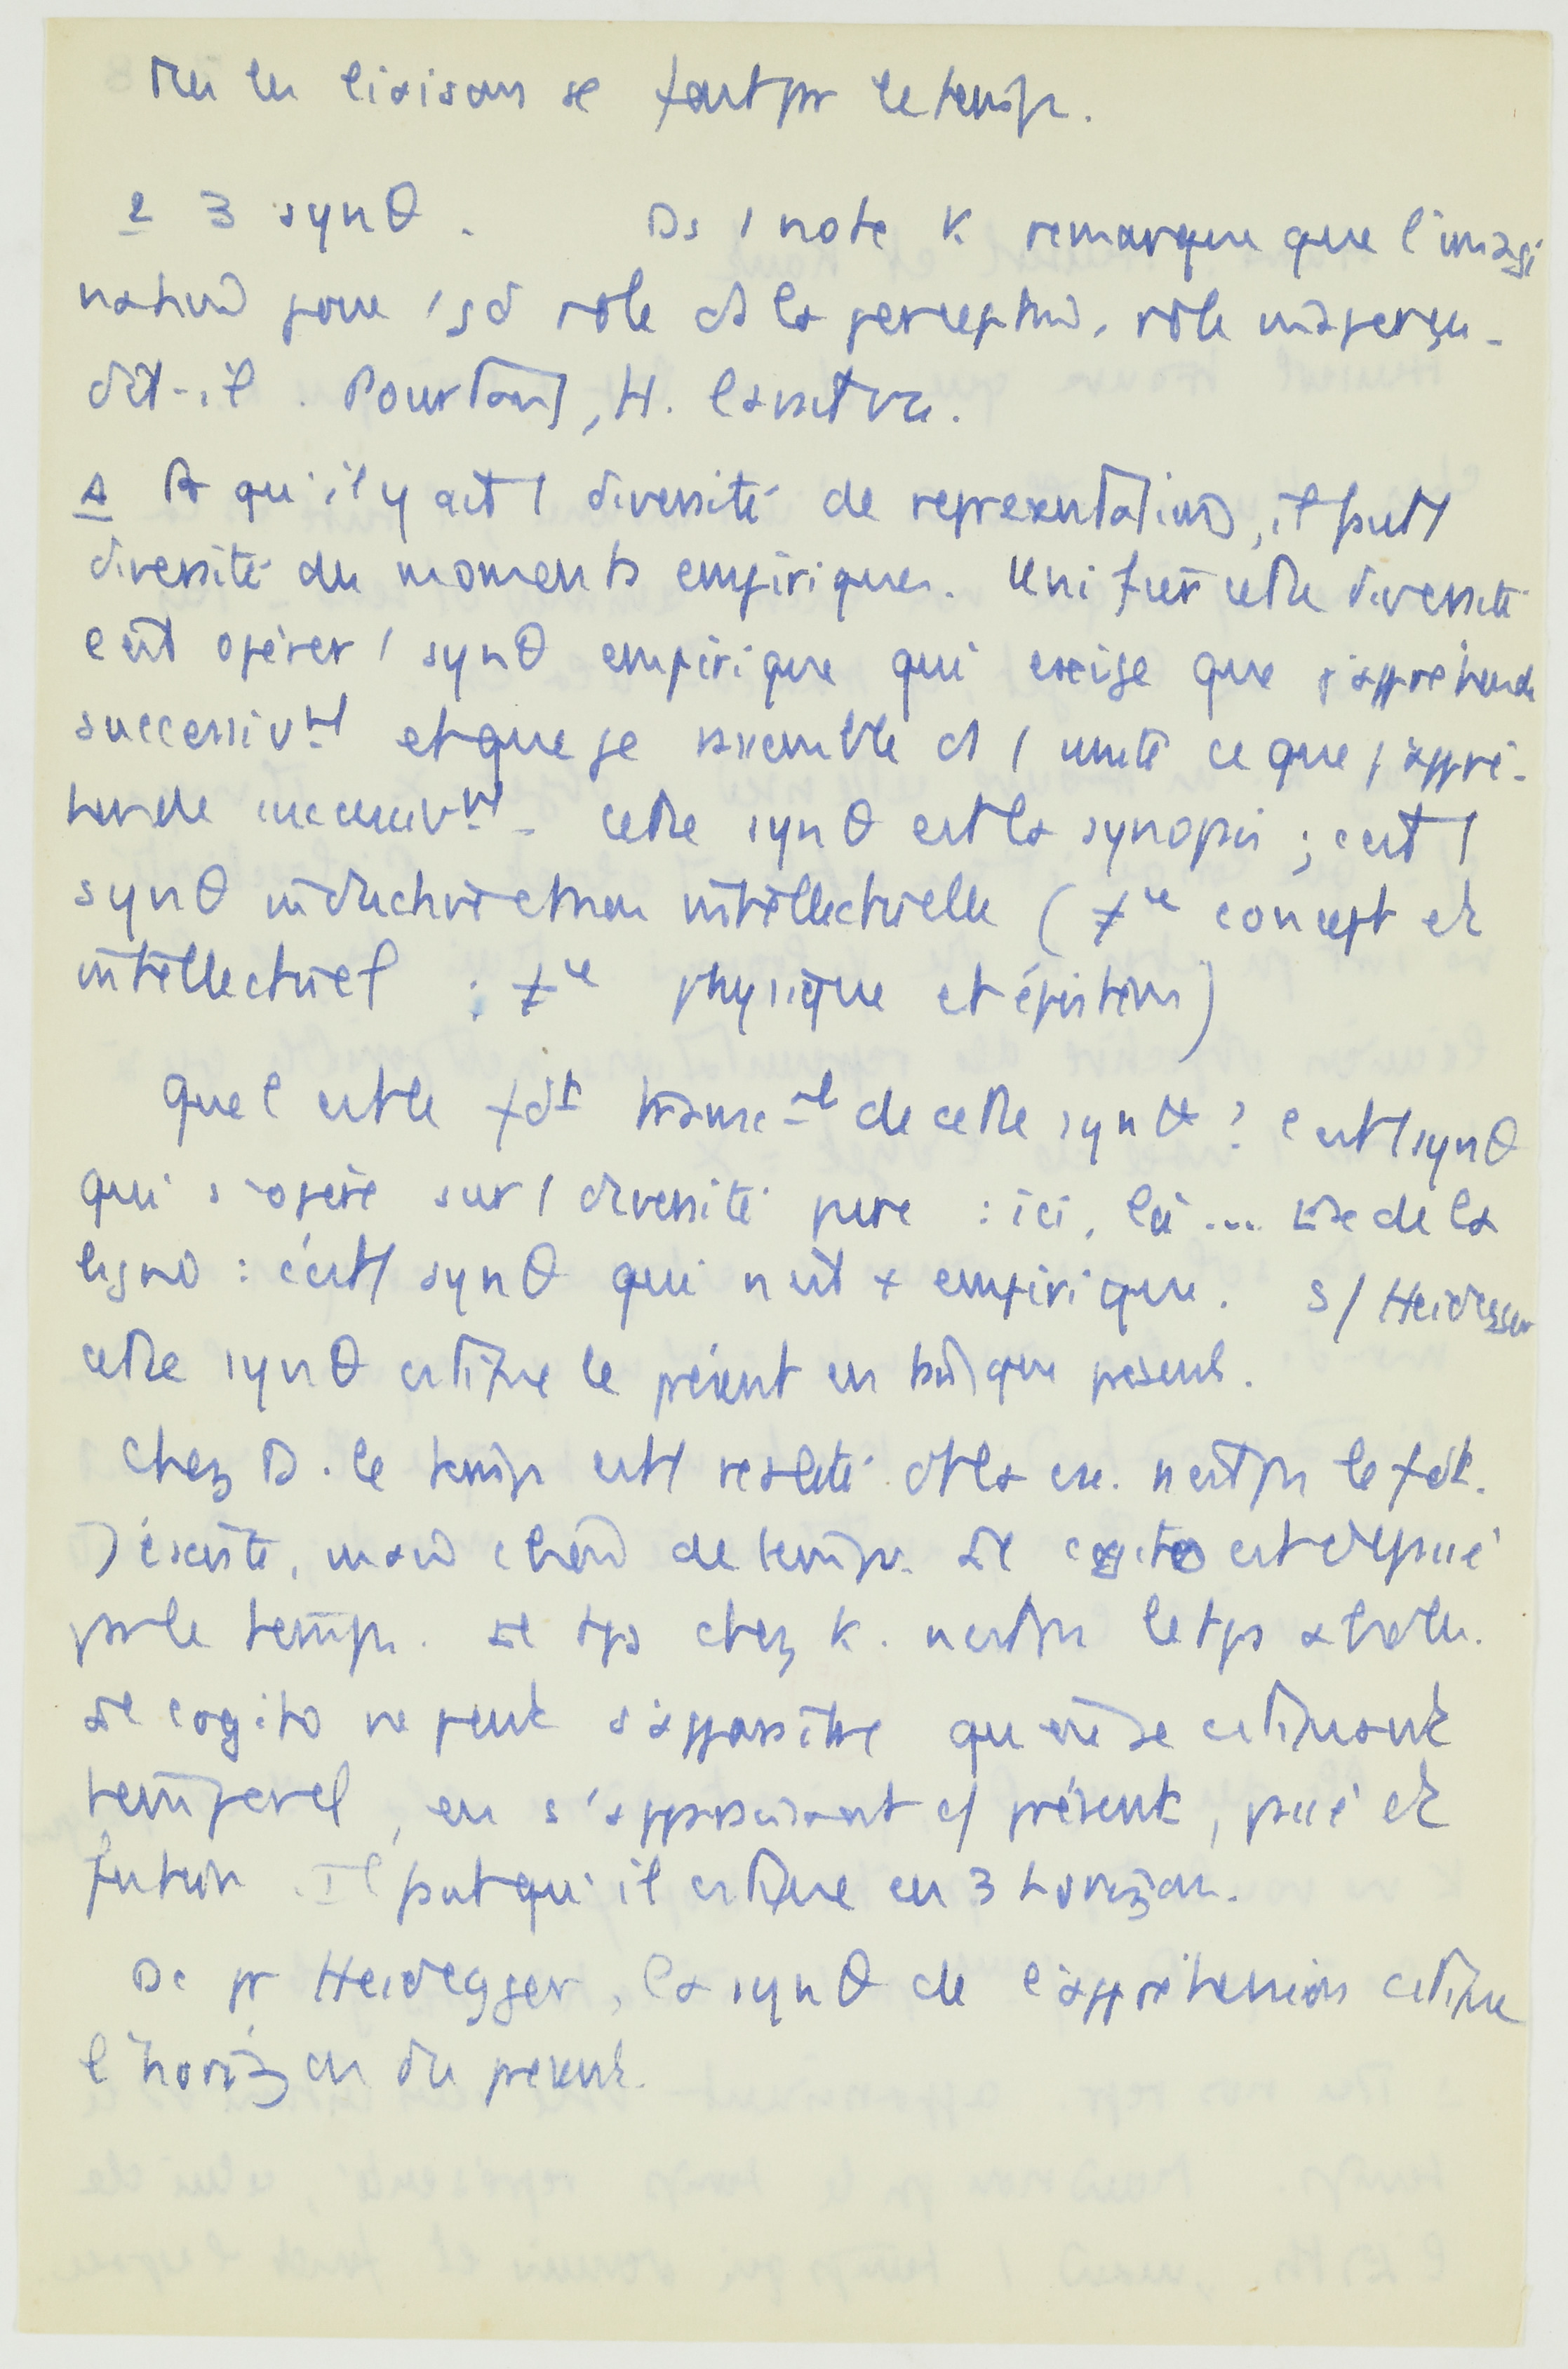 les liaisons se font pr le temps.
2 3 synθ. Ds 1 note K remarque que l'imagi
nation joue 1 gd rôle ds la perception, rôle inaperçu
dit-il. Pourtant, H.
A qu'il y ait 1 diversité de représentations, il faut 1
diversité de moments empiriques. Unifier cette diversité
c'est opérer 1 synθ empirique qui exige que j'appréhende
successivt et que je rassemble ds 1 unité ce que j'appré-
hende successivt. Cette synθ est la synopsis ; c'est 1
synθ et non intellectuelle (≠ce concept et
intellectuel : ≠ce physique et épistém)
Quel est le fdt transcal de cette synθ ? C'est 1 synθ
qui s'opère sur 1 diversité pure : ici, là ... de la
ligne : c'est 1 synθ qui n'est + empirique. S/ Heidegger
cette synθ cstitue le présent en tant que présent.
Chez D. le temps est 1 réalité n'est pas le fdt.
J'existe, mais de temps. Le cogito est dépassé
par le temps. Le tps chez K. n'est pas le tps
Le cogito ne peut s'apparaître qu'en se cstituant
temporel, en s'apparaissant c/ présent, passé et
futur. Il faut qu'il cstitue en 3 horizons.
Dc pr Heidegger, la synθ de l'appréhension cstitue
l'horizon du présent.